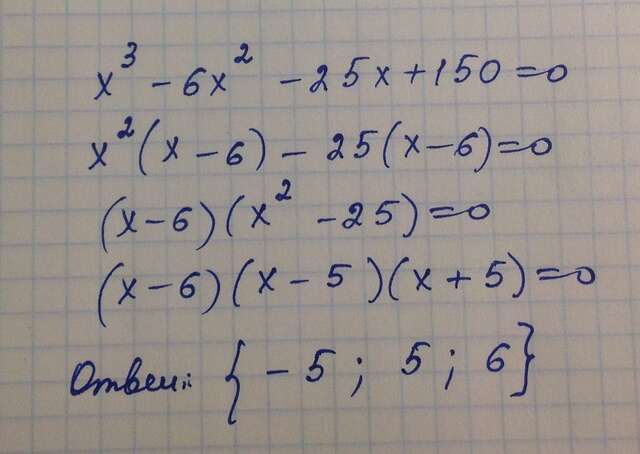 x³ - 6x² - 25x + 150 = 0
x²(x - 6) - 25(x - 6) = 0
(x - 6)(x² - 25) = 0
(x - 6)(x - 5)(x + 5) = 0
Ответ: {-5; 5; 6}